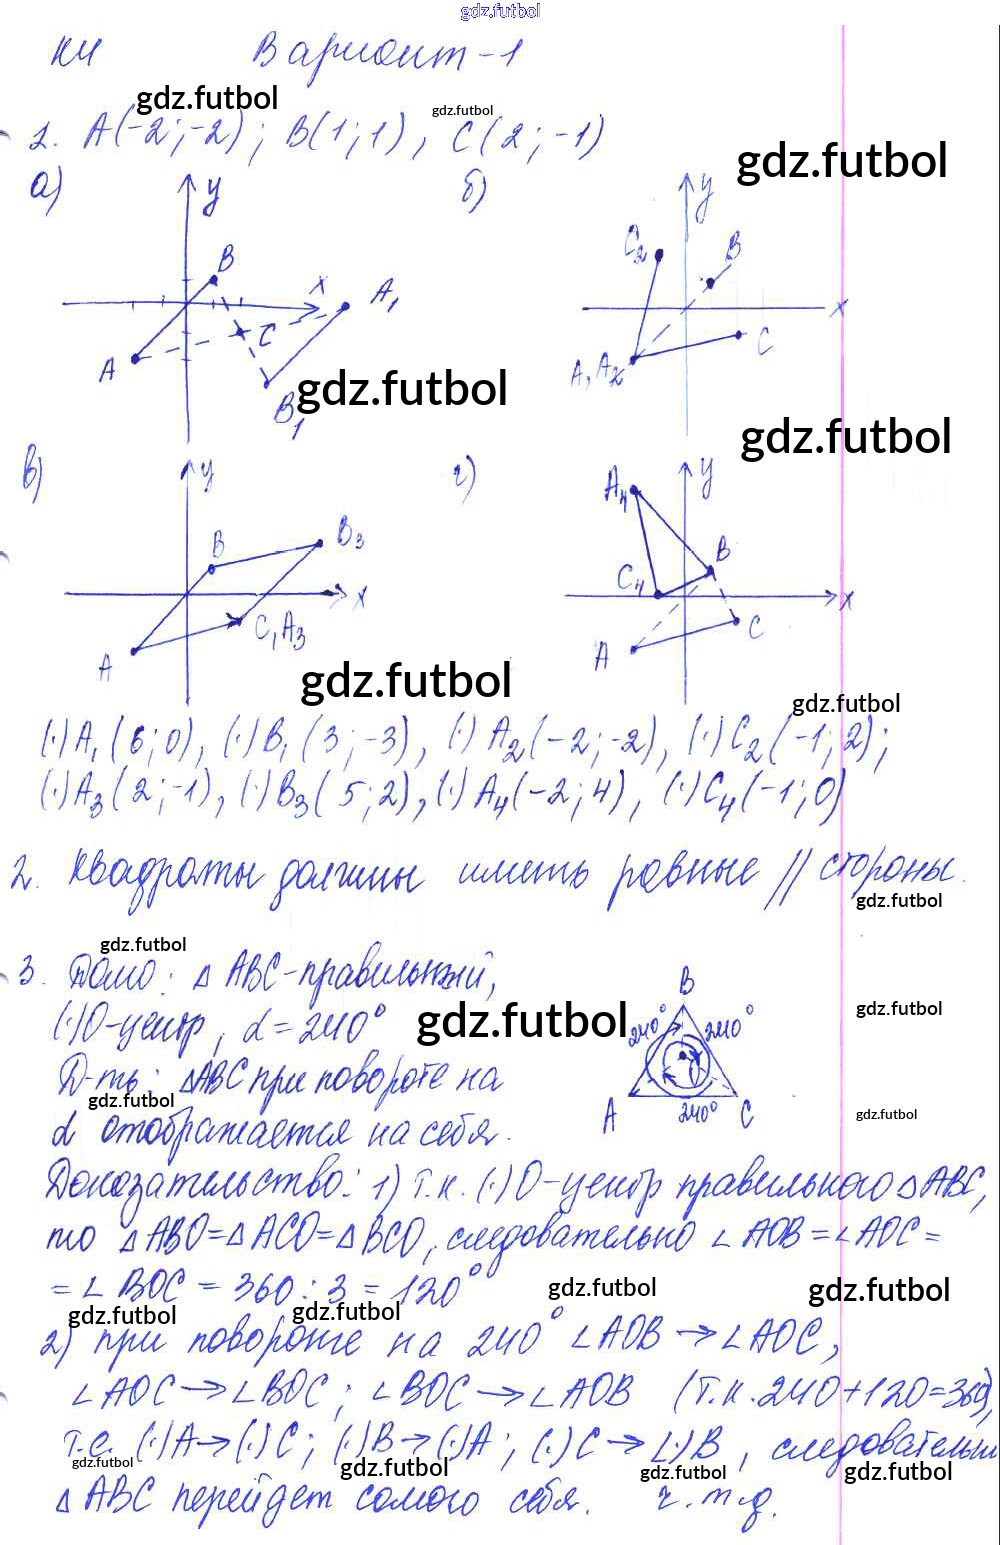 gdz.futbol
К4 Вариант-1
gdz.futbol gdz.futbol
1. A(-2;-2); B(1;1), C(2;-1)
gdz.futbol
а) y б) y
B x A₁ C A B₁
C₂ B x C A, A₂
gdz.futbol
gdz.futbol
в) y г) y
B B₃ x C, A₃ A
A₄ B C₄ x C A
gdz.futbol
gdz.futbol
(·)A₁(6;0), (·)B₁(3;-3), (·)A₂(-2;-2), (·)C₂(-1;2);
(·)A₃(2;-1), (·)B₃(5;2), (·)A₄(-2;4), (·)C₄(-1;0)
2. Квадраты должны иметь равные // стороны.
gdz.futbol
gdz.futbol
3. Дано: △ABC-правильный,
B
(·)O-центр, α=240°
gdz.futbol
240° 240°
gdz.futbol
Д-ть: △ABC при повороте на
gdz.futbol
A 240° C
gdz.futbol
α отображается на себя.
Доказательство: 1) т.к. (·)O-центр правильного △ABC,
то △ABO=△ACO=△BCO, следовательно ∠AOB=∠AOC=
=∠BOC = 360:3=120°
gdz.futbol gdz.futbol
gdz.futbol gdz.futbol
2) при повороте на 240° ∠AOB→∠AOC,
∠AOC→∠BOC; ∠BOC→∠AOB (т.к. 240+120=360),
т.е. (·)A→(·)C; (·)B→(·)A; (·)C→(·)B, следовательно
gdz.futbol gdz.futbol gdz.futbol gdz.futbol
△ABC перейдет самого себя. ч.т.д.